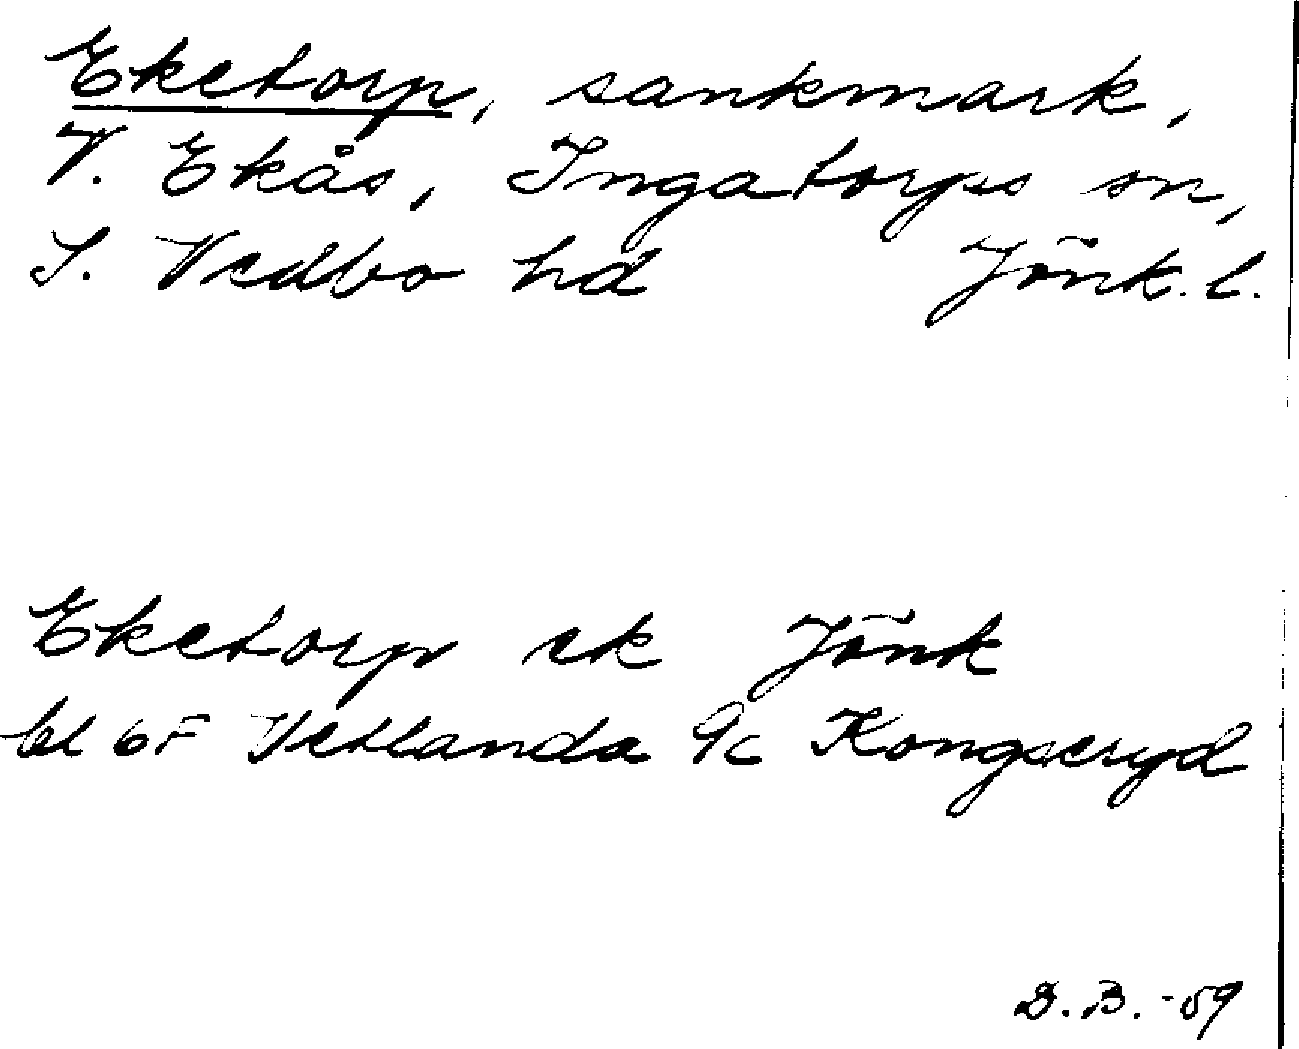 Eketorp, sankmark,
V. Ekås, Ingatorps sn,
S. Vedbo hd Jönk. l.
Eketorp ek Jönk
bl 6F Vetlanda 9c Kongseryd
D.B. -59